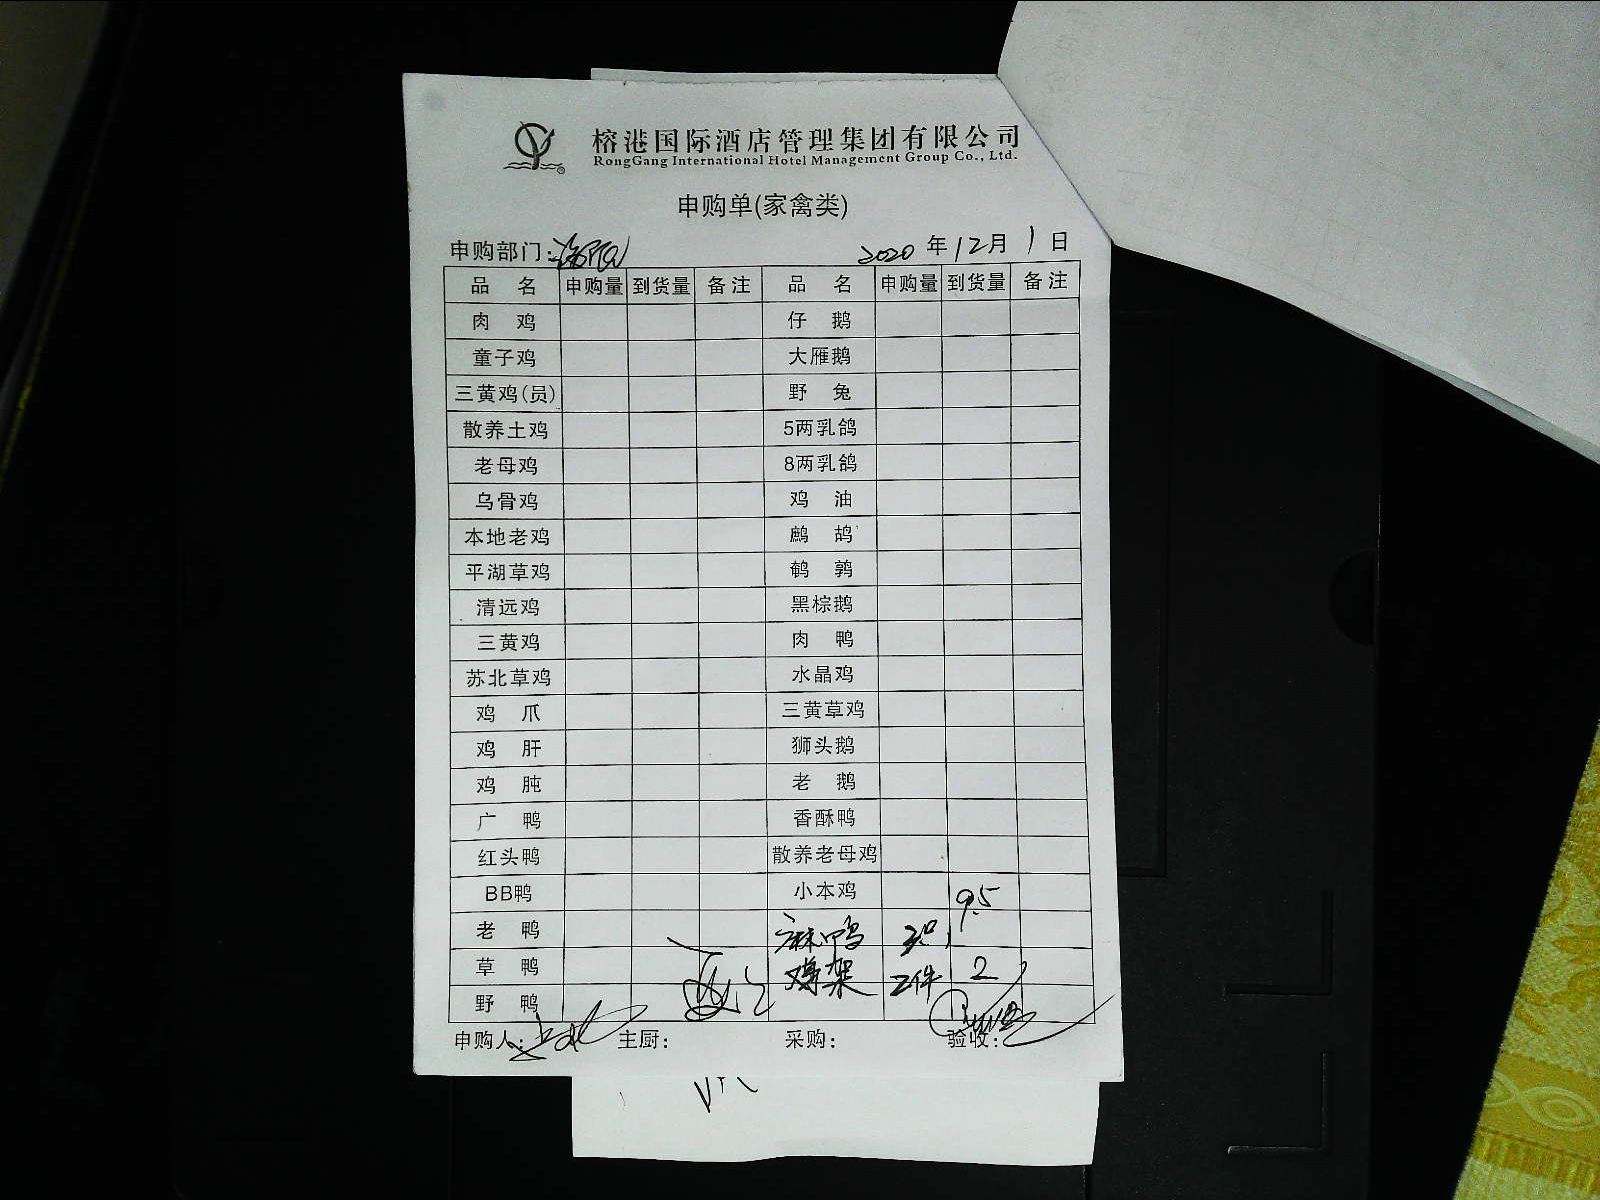 榕港国际酒店管理集团有限公司
RongGang International Hotel Management Group Co., Ltd.
申购单(家禽类)
申购部门: 2020 年 12 月 1 日
品 名 申购量 到货量 备注 品 名 申购量 到货量 备注
肉 鸡 仔 鹅
童子鸡 大雁鹅
三黄鸡(员) 野 兔
散养土鸡 5两乳鸽
老母鸡 8两乳鸽
乌骨鸡 鸡 油
本地老鸡 鹧 鸪
平湖草鸡 鹌 鹑
清远鸡 黑棕鹅
三黄鸡 肉 鸭
苏北草鸡 水晶鸡
鸡 爪 三黄草鸡
鸡 肝 狮头鹅
鸡 肫 老 鹅
广 鸭 香酥鸭
红头鸭 散养老母鸡
BB鸭 小本鸡
老 鸭 麻鸭 3只 9.5
草 鸭 鸡架 2件 2
野 鸭
申购人: 主厨: 采购: 验收: